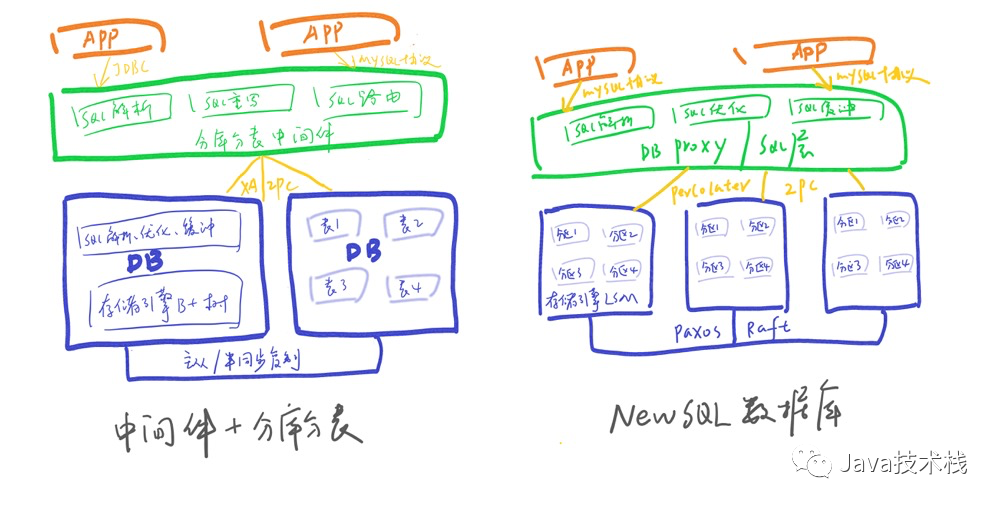 APP
APP
JDBC
mysql协议
SQL解析
SQL重写
SQL路由
分库分表中间件
XA
2PC
SQL解析、优化、缓冲
DB
存储引擎B+树
表1
表2
DB
表3
表4
主从/半同步复制
中间件+分库分表
APP
APP
mysql协议
mysql协议
SQL解析
SQL优化
SQL缓冲
DB proxy
SQL层
percolater
2PC
分区1
分区2
分区3
分区4
存储引擎LSM
分区1
分区2
分区3
分区4
分区1
分区2
分区3
分区4
paxos
Raft
NewSQL数据库
Java技术栈